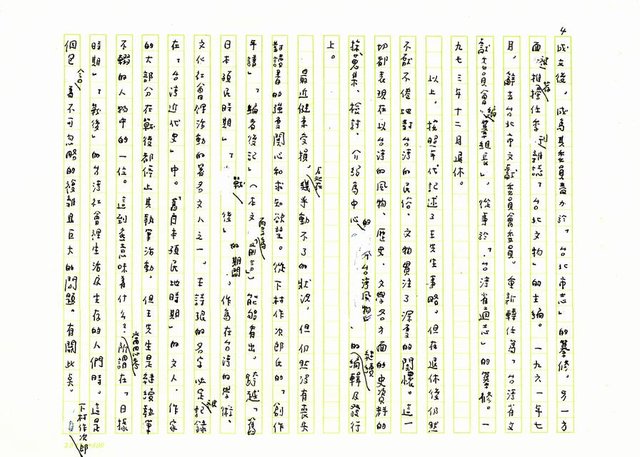 4
成文後，成為其委員盡力於「台北市志」的纂修。另一方
面，擔任季刊雜誌「台北文物」的主編。一九六一年七
月，辭去台北市文獻委員會委員。重新轉任為「台灣省文
獻委員會編纂組長」，從事於「台灣省通志」的纂修。一
九七三年十二月退休。
以上，按照年代記述了王先生事略。但在退休後仍然
不倦地對台灣的民俗、文物貫注了深重的關懷。這一
切都表現在以台灣的風物、歷史、文學各方面的史資料的
蒐集、檢討、介紹為中心的「台灣風物」的繼續編輯及發行
上。
最近健康受損，動不了的狀況，但仍然沒有喪失
對讀書的強烈關心和求知欲望。從下村作次郎氏的「創作
年譜」，「編者後記」能夠看出。跨越「舊
日本殖民時期」、「戰後」的期間，作為在台灣的學術、
文化社會裡活動的著名文人之一，王詩琅的名字必定被記錄
在「台灣近代史」中。舊日本殖民地時期的文人、作家
的大部分在戰後都停止其執筆活動，但王先生是繼續執筆
不輟的人物中的一位。這到底意味着什麼？所謂在「日據
時期」、「戰後」的台灣社會裡生活及生存的人們時，這是
個包含着不可忽略的複雜且巨大的問題。有關此矣。
下村作次郎